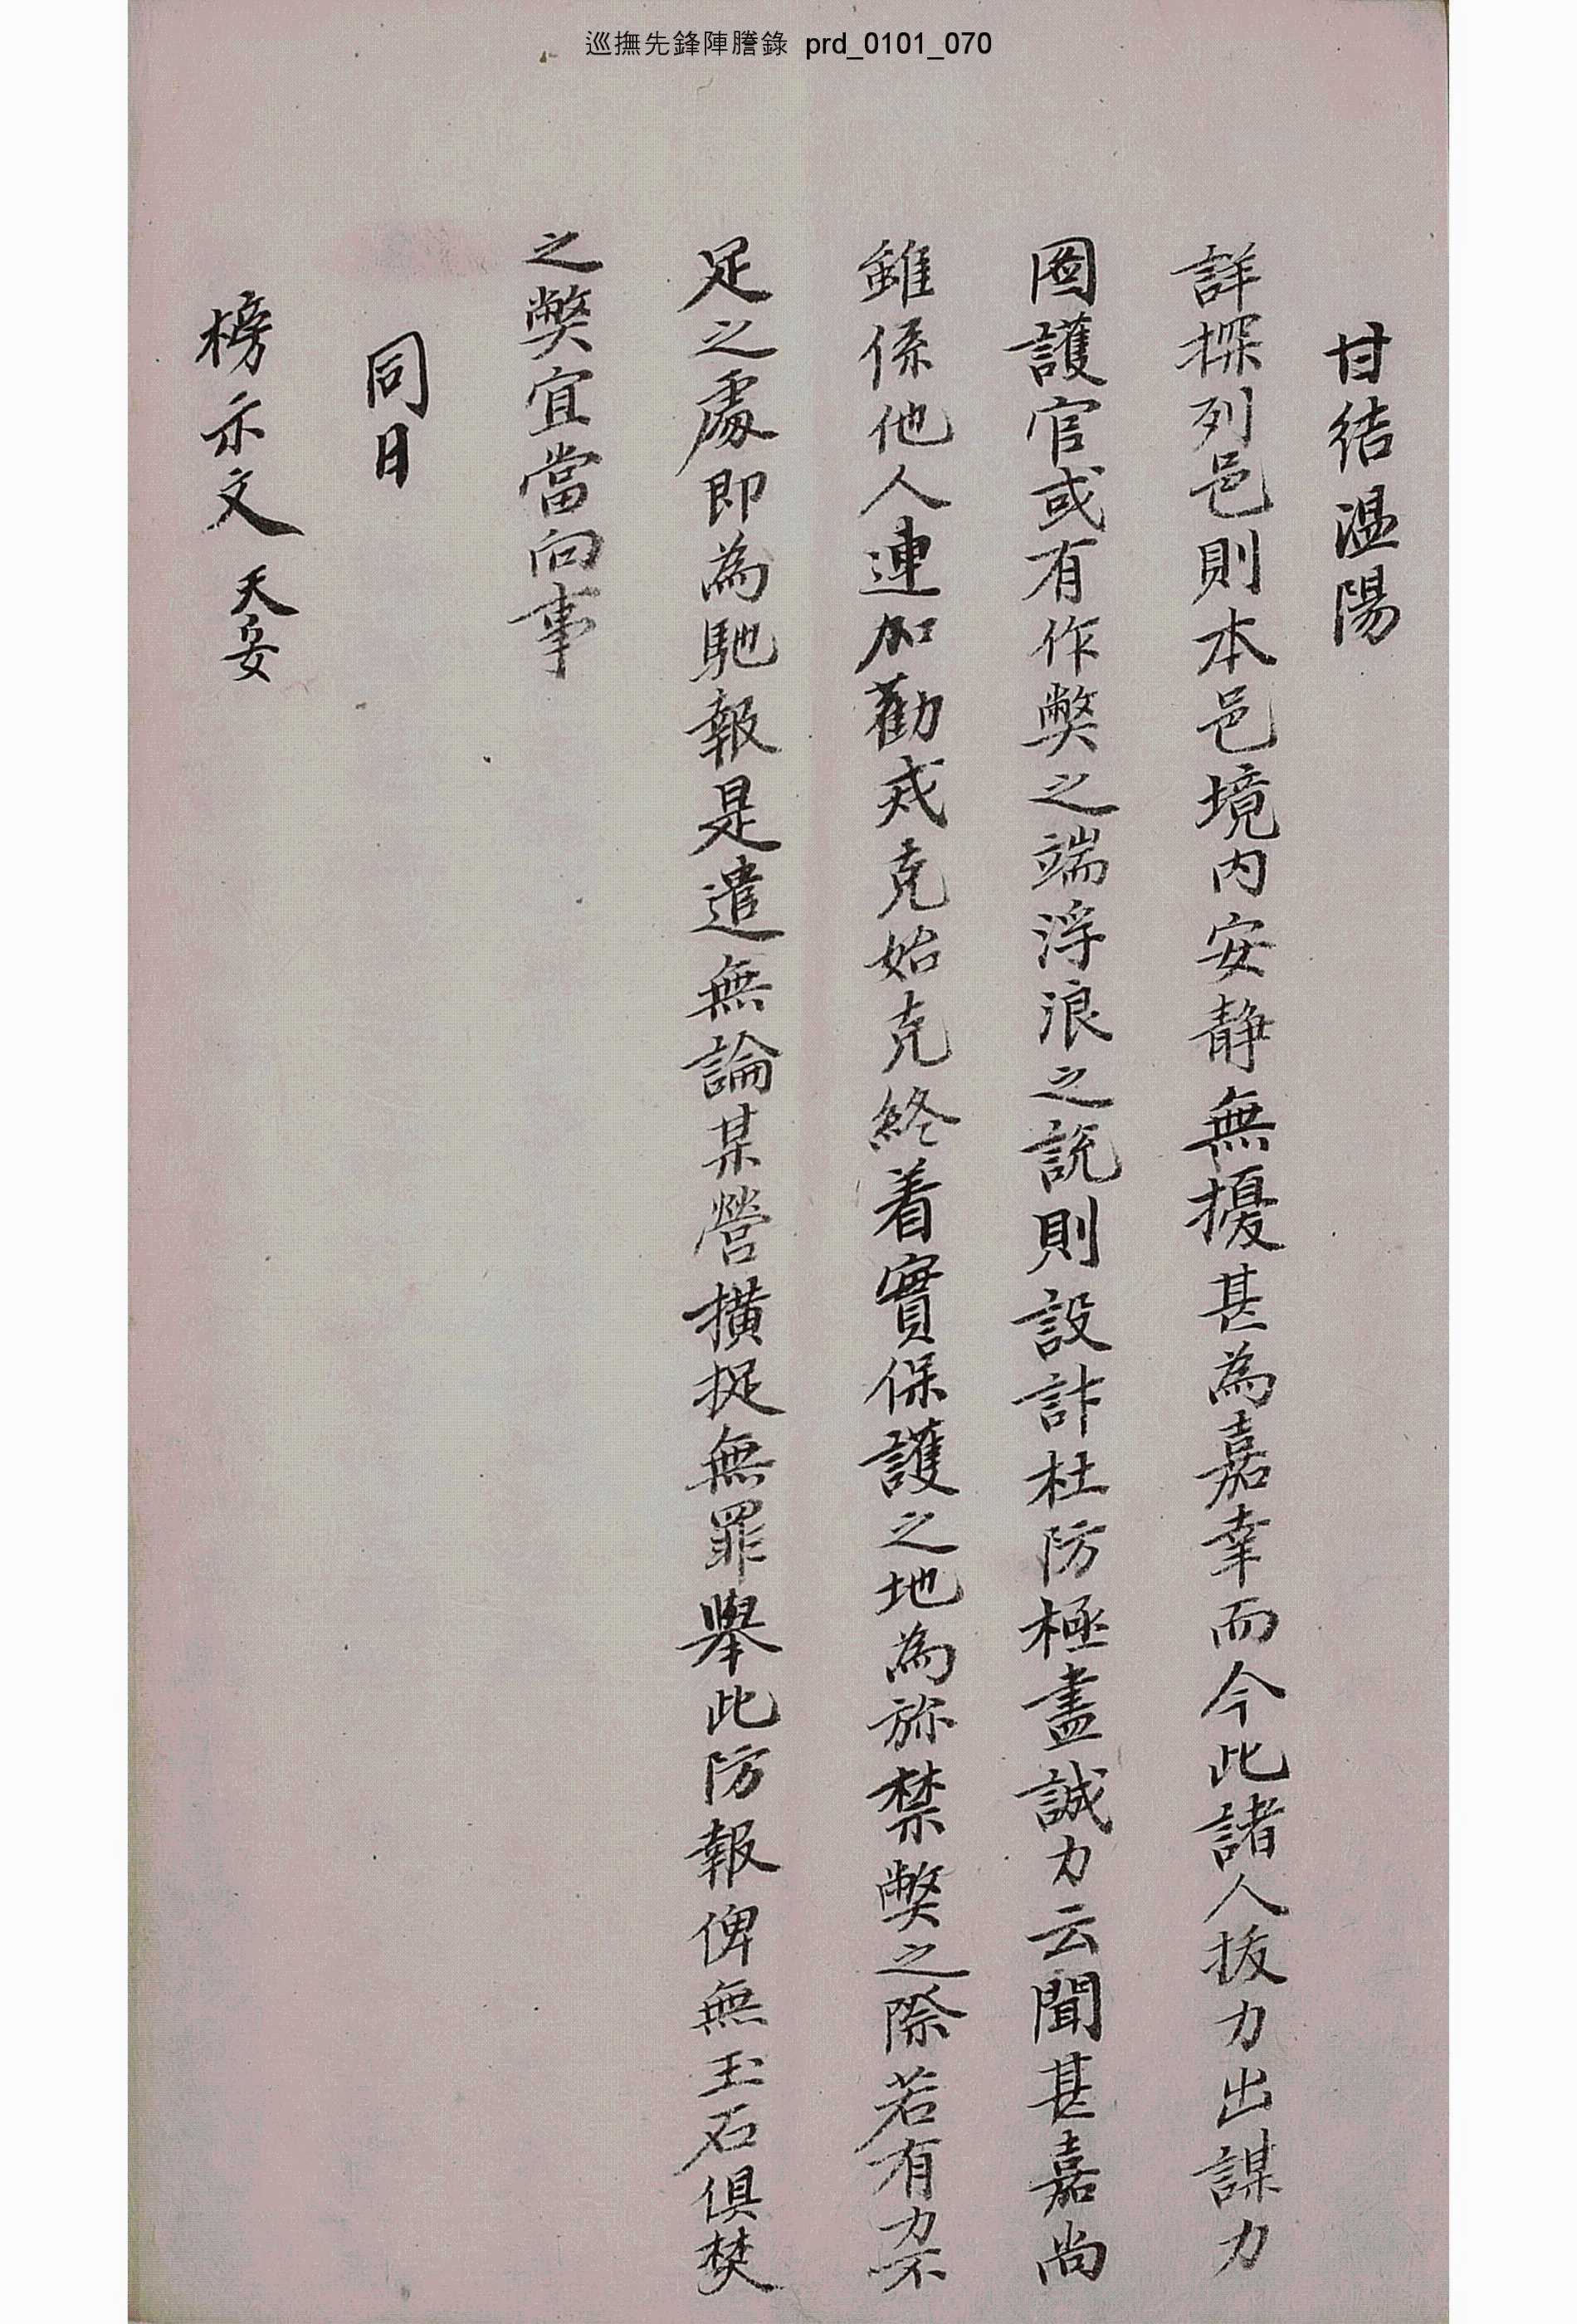 巡撫先鋒陣謄錄 prd_0101_070
甘結溫陽
詳探列邑則本邑境內安靜無擾甚為嘉幸而今此諸人拔力出謀力
圖護官或有作獘之端浮浪之說則設計杜防極盡誠力云聞甚嘉尚
雖係他人連加勸戒克始克終着實保護之地為旀禁獘之際若有力不
足之處即為馳報是遣無論某營橫捉無罪舉此防報俾無玉石俱焚
之獘宜當向事
同日
榜示文 天安